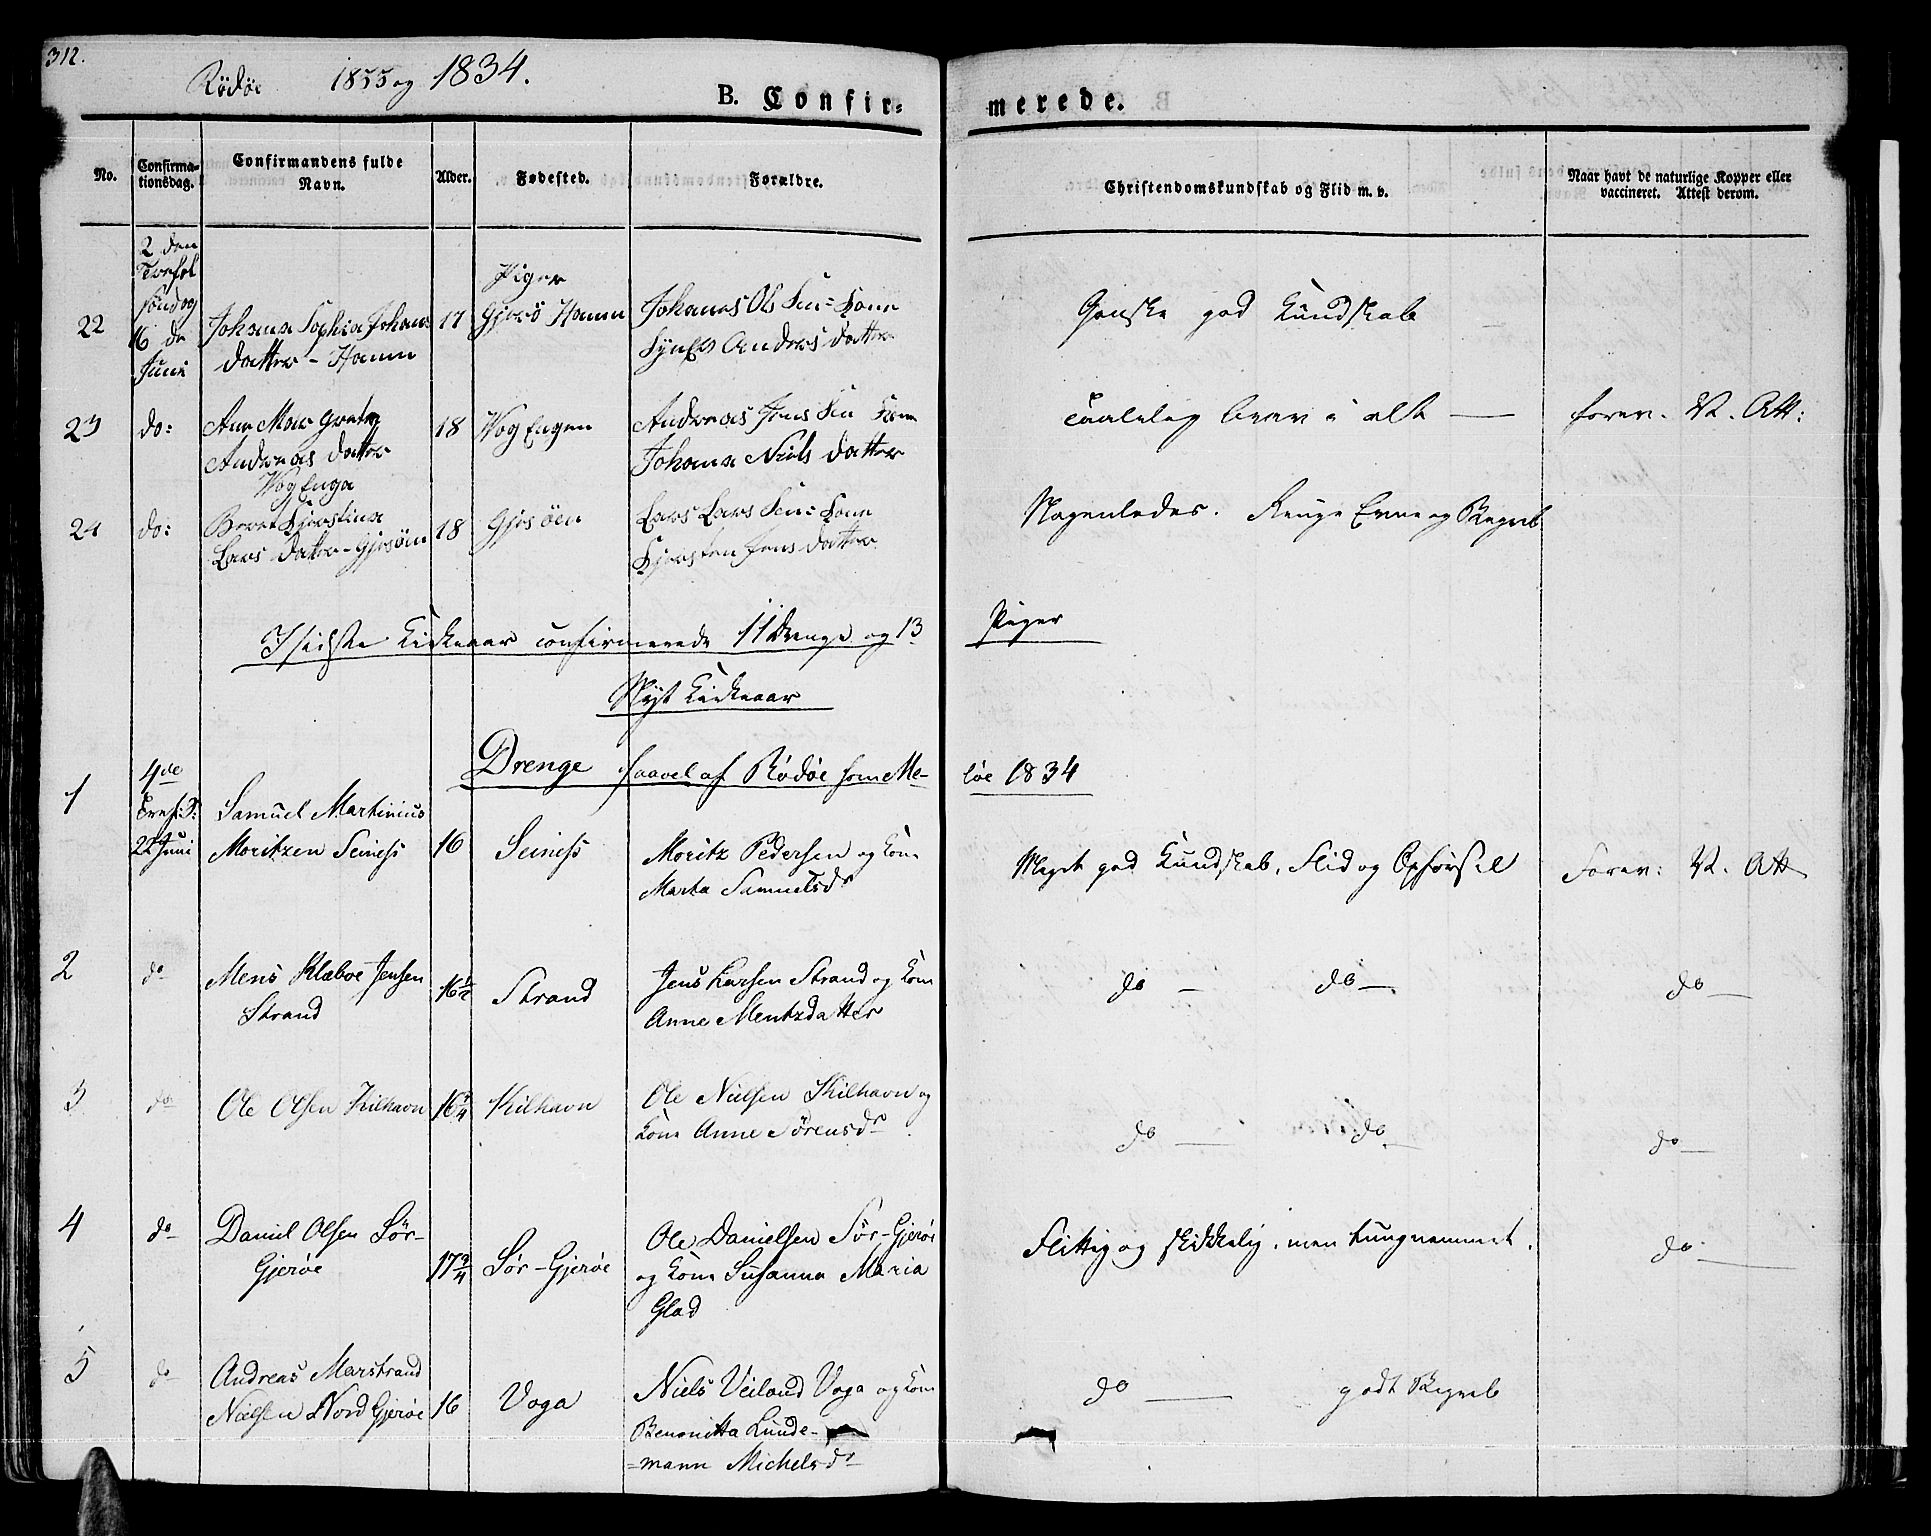 312.
Rödöe 1833 og 1834.
B. Confir-
merede.
No.
Confirma-
tionsdag.
Confirmandens fulde
Navn.
Alder.
Fødested.
Forældre.
Christendomskundskab og Flid m. v.
Naar havt de naturlige Kopper eller
vaccineret. Attest derom.
2 den
søndag
16 de
Juni
Piger
22 Johana Sophia Johans
datter - Hamn
17 Gjerö Hamn
Johanes Ols Sen = Kone
Andreas datter
Ganske god Kundskab
23 do: Ane Mar Greta
Andreas datter
Vog Enga
18 Vog Engen
Andreas Jens Sen Kone
Johana Niels datter
Taalelig brav i alt — forev. V. Att:
24 do: Beret Kjerstina
Lars datter - Gjerøen
18 Gjerøen
Lars Lars Sen = Kone
Kjersten Jens datter
Nogenledes. Ringe Evne og Begreb
I sidste Kirkeaar confirmerede 11 Drenge og 13
Piger
Nyt Kirkeaar
Drenge saavel af Rödöe som Me-
löe 1834
1 4de
Tref: S:
22 Juni
Samuel Martinius
Moritzen Seines
16 Seines
Moritz Pedersen og Kone
Marta Samuelsdr
Meget god Kundskab, Flid og Opførsel
Forev: V. Att
2 do Mens Klæboe Jensen
Strand
16½ Strand
Jens Larsen Strand og Kone
Anne Mentzdatter
do — do — do —
3 do Ole Olsen Kilhavn
16¾ Kilhavn
Ole Nielsen Kilhavn og
Kone Anne Sørensdr
do — do — do —
4 do Daniel Olsen Sør-
Gjerøe
17¾ Sør-Gjerøe
Ole Danielsen Sør-Gjerøe
og Kone Susanna Maria
Glad
Flittig og skikkelig, men tungnemmet.
do. —
5 do Andreas Marstrand
Nielsen Nord Gjerøe
16 Voga
Niels Veilund Voga og Kone
Benonitta Lunde-
=mann Michelsdr
do — godt Begreb